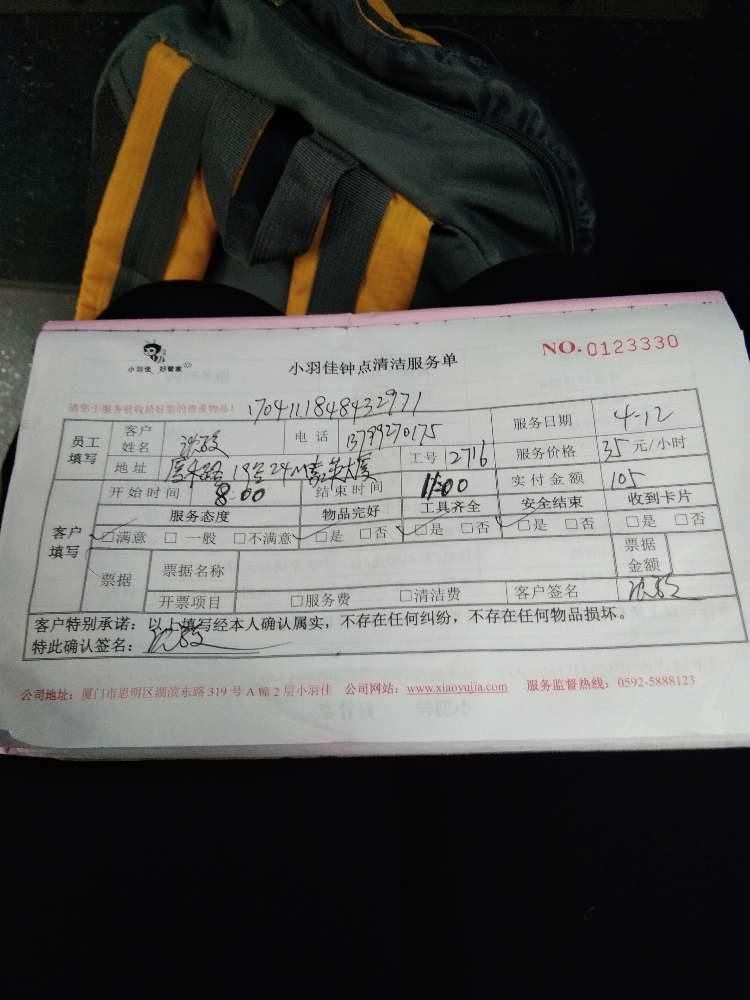 小羽佳 好管家
小羽佳钟点清洁服务单
NO.0123330
请您于服务前收拾好您的贵重物品!
1704111848432971
员工填写 客户姓名 电话 13799270175 服务日期 4-12
地址 工号 2716 服务价格 35 元/小时
客户填写 开始时间 8:00 结束时间 11:00 实付金额 105
服务态度 物品完好 工具齐全 安全结束 收到卡片
□满意 □一般 □不满意 □是 □否 □是 □否 □是 □否 □是 □否
票据 票据名称 票据金额
开票项目 □服务费 □清洁费 客户签名
客户特别承诺:以上填写经本人确认属实,不存在任何纠纷,不存在任何物品损坏。
特此确认签名:
公司地址:厦门市思明区湖滨东路 319 号 A 幢 2 层小羽佳 公司网站:www.xiaoyujia.com 服务监督热线:0592-5888123